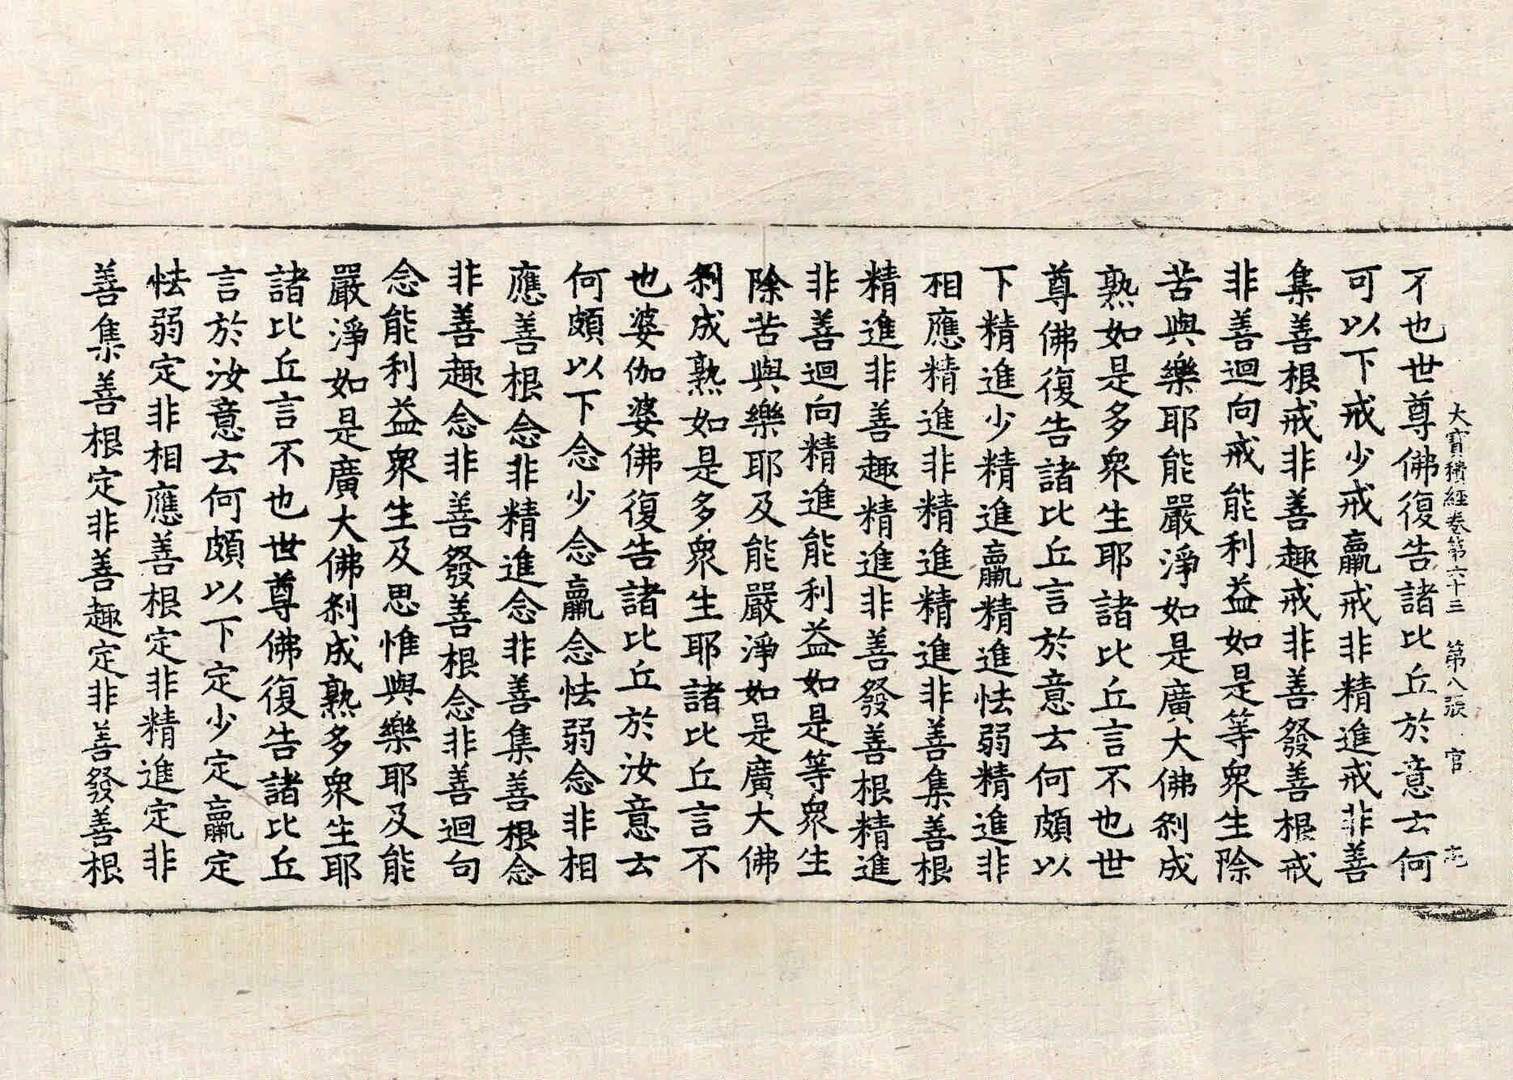 大寶積經卷第六十三 第八張 官
不也世尊佛復告諸比丘於意云何
可以下戒少戒羸戒非精進戒非善
集善根戒非善趣戒非善發善根戒
非善迴向戒能利益如是等衆生除
苦與樂耶能嚴淨如是廣大佛刹成
熟如是多衆生耶諸比丘言不也世
尊佛復告諸比丘言於意云何頗以
下精進少精進羸精進怯弱精進非
相應精進非精進精進非善集善根
精進非善趣精進非善發善根精進
非善迴向精進能利益如是等衆生
除苦與樂耶及能嚴淨如是廣大佛
刹成熟如是多衆生耶諸比丘言不
也婆伽婆佛復告諸比丘於汝意云
何頗以下念少念羸念怯弱念非相
應善根念非精進念非善集善根念
非善趣念非善發善根念非善迴句
念能利益衆生及思惟與樂耶及能
嚴淨如是廣大佛刹成熟多衆生耶
諸比丘言不也世尊佛復告諸比丘
言於汝意云何頗以下定少定羸定
怯弱定非相應善根定非精進定非
善集善根定非善趣定非善發善根